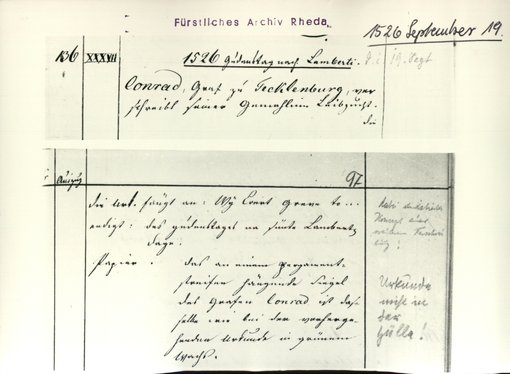 Fürstliches Archiv Rheda
1526 September 19.
136 XXXVII 1526 Gudensttag nach Lamberti. d. i. 19. Sept
Conrad, Graf zu Tecklenburg, ver
schreibt seiner Gemahlin Leibzucht.
die
Auszug 97
die Urk. fängt an: Wy Coert Greve to ...
endigt: des gudensttages na sünte Lambertz
dage.
Papier. das an einem pergament-
streifen hängende Siegel
des Grafen Conrad ist das-
selbe wie bei der vorherge-
henden Urkunde in grünem
Wachs.
Urkunde
nicht in
der
Hülle!